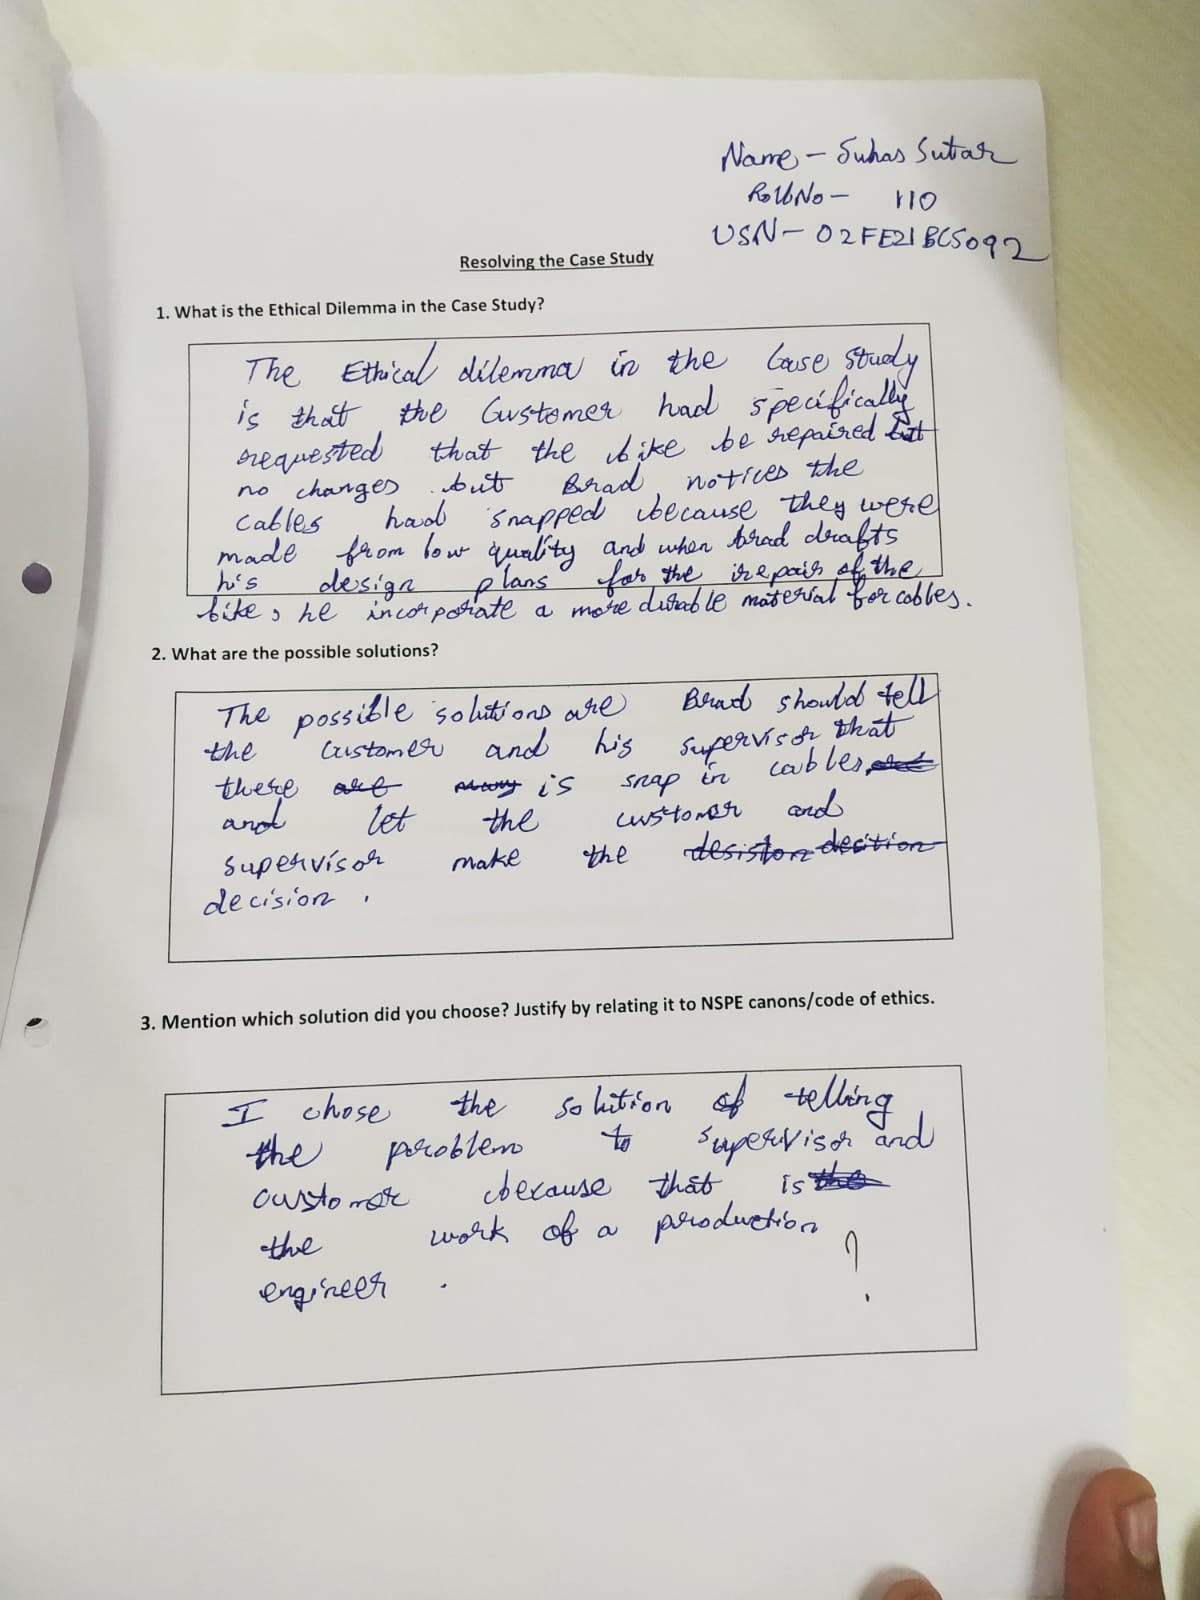 Name - Suhas Sutar
Roll No - 110
USN - 02FE21BCS092
Resolving the Case Study
1. What is the Ethical Dilemma in the Case Study?
The Ethical dilemma in the Case Study
is that the Customer had specifically
requested that the bike be repaired but
no changes. but Brad notices the
cables had snapped because they were
made from low quality and when brad drafts
his design plans for the repair of the
bike, he incorporate a more durable material for cables.
2. What are the possible solutions?
The possible solutions are Brad should tell
the Customer and his supervisor that
there are many is snap in cables
and let the customer and
supervisor make the desiston decition
decision.
3. Mention which solution did you choose? Justify by relating it to NSPE canons/code of ethics.
I chose the solution of telling
the problem to supervisor and
customer because that is the
the work of a production
engineer.
?